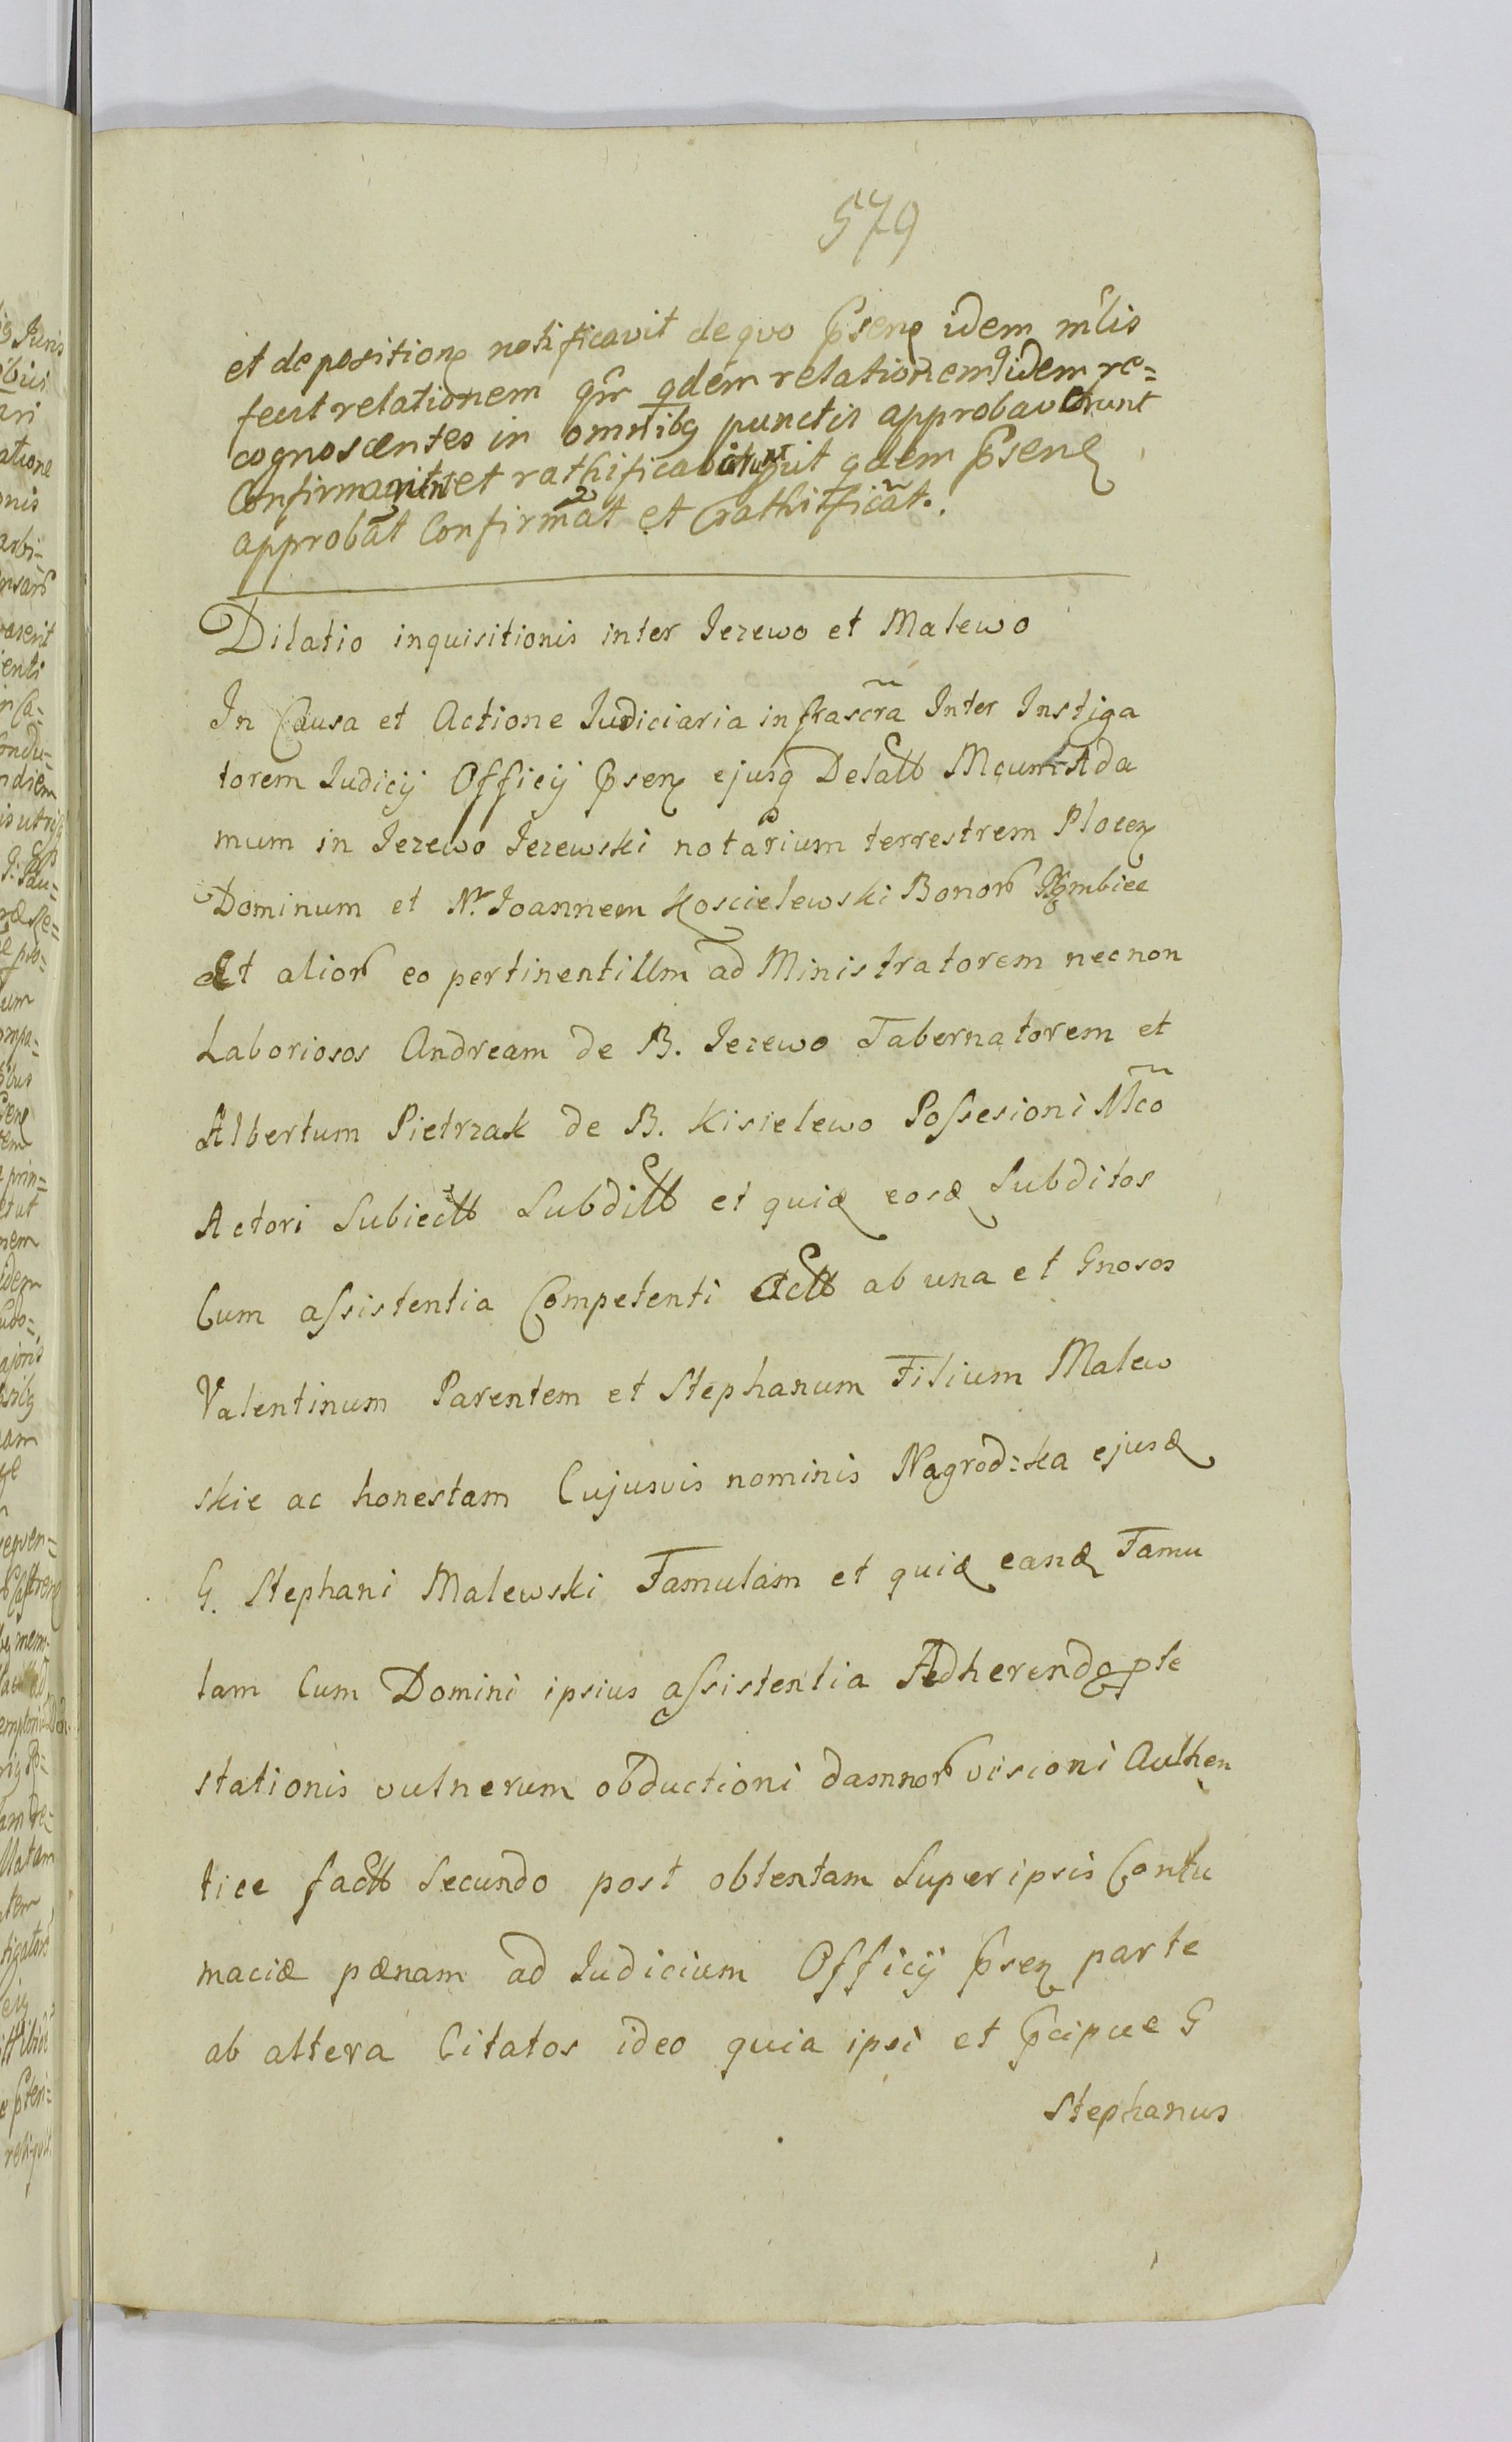 579
et depositione notificavit de quo Psene idem mlis
fecit relationem qr̃ qdem relationem idem re=
cognoscentes in omnibq punctis approbaverunt
Confirmarunt et rathificav uit qdem Psene
approbãt Confirmãt et rathificãt.
Dilatio inquisitionis inter Jezewo et Malewo
In Causa et Actione Judiciaria infrascrã Inter Instiga
torem Judicij Officij Psen ejusq Delatt Mcum Ada
mum in Jezewo Jezewski notarium terrestrem Plocen
Dominum et Nr. Joannem Koscielewski Bonor
Et alior eo pertinentium ad Ministratorem necnon
Laboriosos Andream de B. Jezewo Tabernatorem et
Albertum Pietrzak de B. Kisielewo Possesioni Mcõ
Actori Subiectt Subditt et quid eosd Subditos
Cum assistentia Competenti Actt ab una et Gnosos
Valentinum Parentem et Stephanum Filium Malew
skie ac honestam Cujusvis nominis Nagrodzka ejusd
G. Stephani Malewski Famulam et quid eand Famu
lam Cum Domini ipsius assistentia Adherendo pte
stationis vulnerum obductioni damnor visioni Authen
tice factt Secundo post obtentam Super ipsis Contu
maciæ pænam ad Judicium Officij Psen parte
ab altera Citatos ideo quia ipsi et Pcipue G
Stephanus